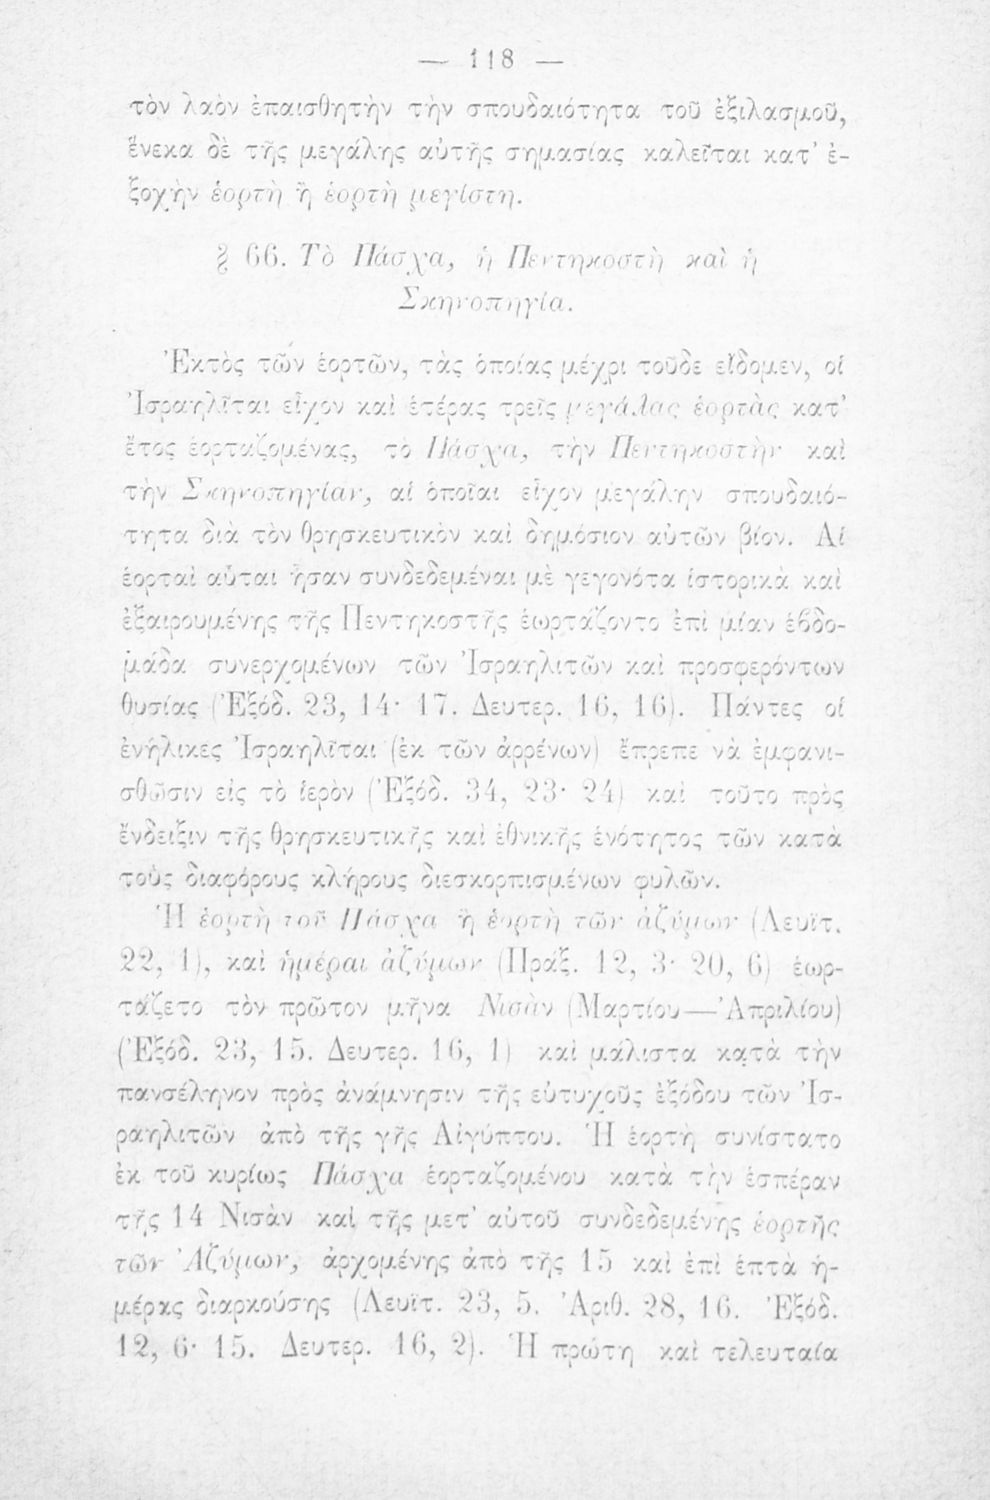 — 118 —
τὸν λαὸν ἐπαισθητὴν τὴν σπουδαιότητα τοῦ ἐξιλασμοῦ,
ἕνεκα δὲ τῆς μεγάλης αὐτῆς σημασίας καλεῖται κατ' ἐ-
ξοχὴν ἑορτὴ ἢ ἑορτὴ μεγίστη.
§ 66. Τὸ Πάσχα, ἡ Πεντηκοστὴ καὶ ἡ
Σκηνοπηγία.
Ἐκτὸς τῶν ἑορτῶν, τὰς ὁποίας μέχρι τοῦδε εἴδομεν, οἱ
Ἰσραηλῖται εἶχον καὶ ἑτέρας τρεῖς μεγάλας ἑορτὰς κατ'
ἔτος ἑορταζομένας, τὸ Πάσχα, τὴν Πεντηκοστὴν καὶ
τὴν Σκηνοπηγίαν, αἱ ὁποῖαι εἶχον μεγάλην σπουδαιό-
τητα διὰ τὸν θρησκευτικὸν καὶ δημόσιον αὐτῶν βίον. Αἱ
ἑορταὶ αὗται ἦσαν συνδεδεμέναι μὲ γεγονότα ἱστορικὰ καὶ
ἐξαιρουμένης τῆς Πεντηκοστῆς ἑωρτάζοντο ἐπὶ μίαν ἑβδο-
μάδα συνερχομένων τῶν Ἰσραηλιτῶν καὶ προσφερόντων
θυσίας (Ἐξόδ. 23, 14· 17. Δευτερ. 16, 16). Πάντες οἱ
ἐνήλικες Ἰσραηλῖται (ἐκ τῶν ἀρρένων) ἔπρεπε νὰ ἐμφανι-
σθῶσιν εἰς τὸ ἱερὸν (Ἐξόδ. 34, 23· 24) καὶ τοῦτο πρὸς
ἔνδειξιν τῆς θρησκευτικῆς καὶ ἐθνικῆς ἑνότητος τῶν κατὰ
τοὺς διαφόρους κλήρους διεσκορπισμένων φυλῶν.
Ἡ ἑορτὴ τοῦ Πάσχα ἢ ἑορτὴ τῶν ἀζύμων (Λευϊτ.
22, 1), καὶ ἡμέραι ἀζύμων (Πράξ. 12, 3· 20, 6) ἑωρ-
τάζετο τὸν πρῶτον μῆνα Νισὰν (Μαρτίου—Ἀπριλίου)
(Ἐξόδ. 23, 15. Δευτερ. 16, 1) καὶ μάλιστα κατὰ τὴν
πανσέληνον πρὸς ἀνάμνησιν τῆς εὐτυχοῦς ἐξόδου τῶν Ἰσ-
ραηλιτῶν ἀπὸ τῆς γῆς Αἰγύπτου. Ἡ ἑορτὴ συνίστατο
ἐκ τοῦ κυρίως Πάσχα ἑορταζομένου κατὰ τὴν ἑσπέραν
τῆς 14 Νισὰν καὶ τῆς μετ' αὐτοῦ συνδεδεμένης ἑορτῆς
τῶν Ἀζύμων, ἀρχομένης ἀπὸ τῆς 15 καὶ ἐπὶ ἑπτὰ ἡ-
μέρας διαρκούσης (Λευϊτ. 23, 5. Ἀριθ. 28, 16. Ἐξόδ.
12, 6· 15. Δευτερ. 16, 2). Ἡ πρώτη καὶ τελευταία